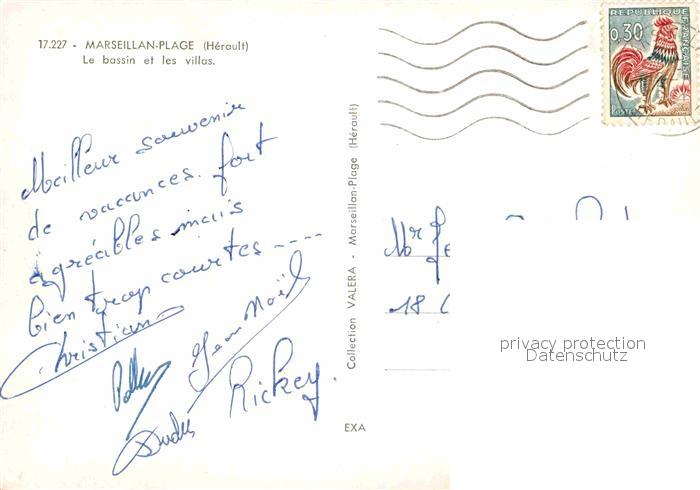 17.227 - MARSEILLAN-PLAGE (Hérault)
Le bassin et les villas.
Meilleur souvenir
de vacances fort
agréables mais
bien trop courtes ----
Christian
Jean Noël
André
Rickey.
Collection VALERA - Marseillan-Plage (Hérault)
EXA
REPUBLIQUE FRANÇAISE
0,30
POSTES
Mr
18
privacy protection
Datenschutz